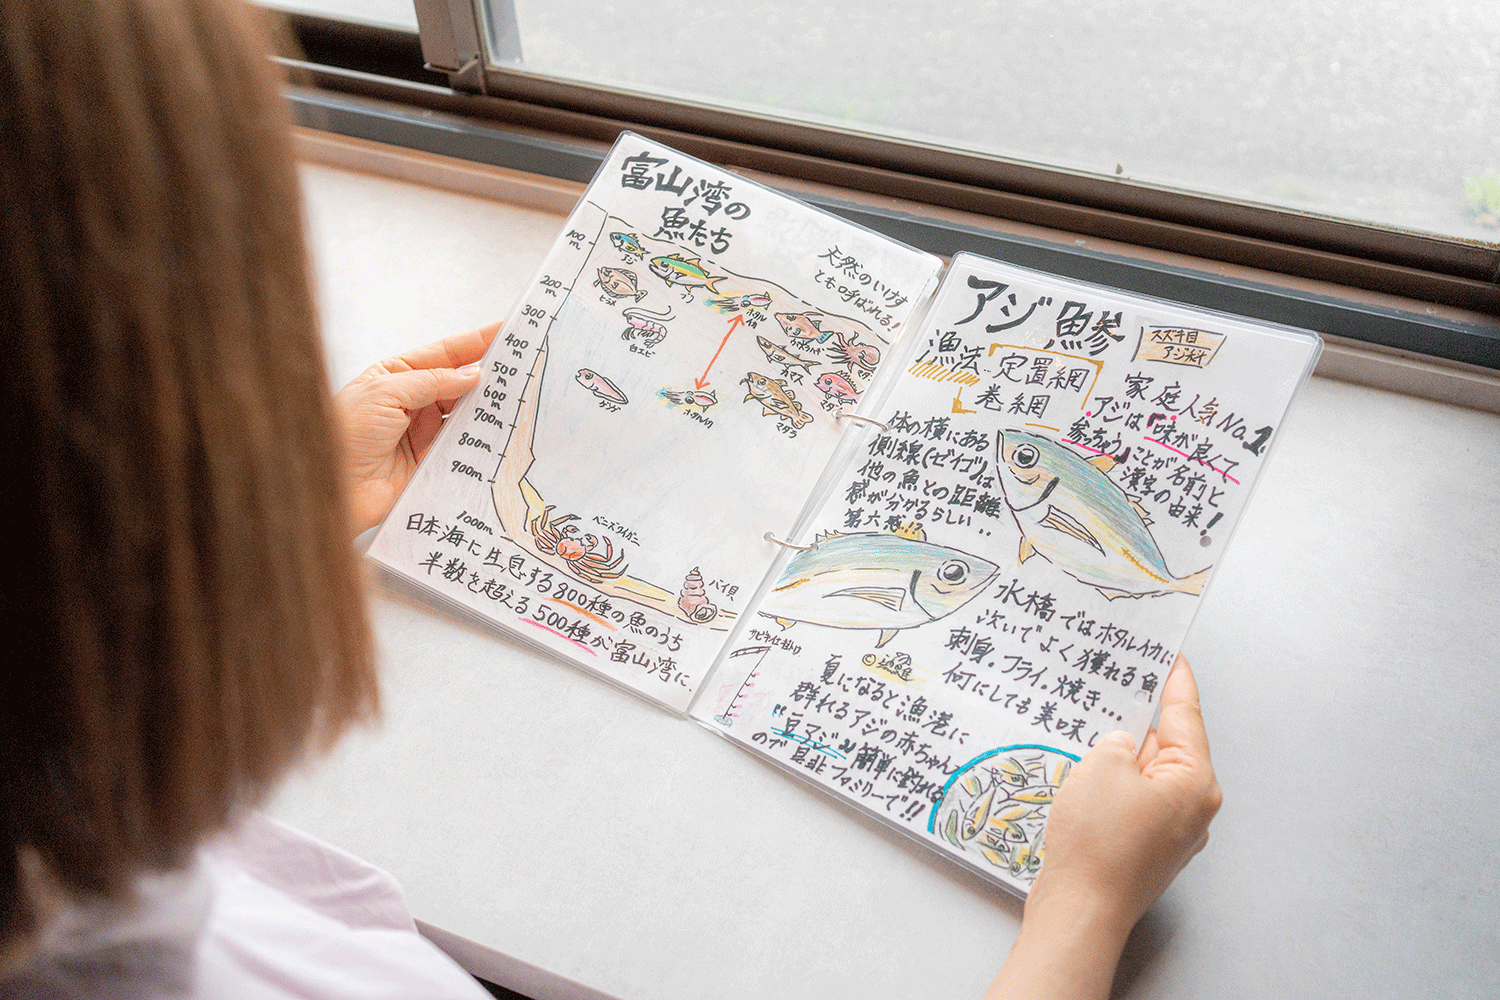 富山湾の
魚たち
天然のいけす
とも呼ばれる!
100m
200m
300m
400m
500m
600m
700m
800m
900m
1000m
アジ
ブリ
ヒラメ
ホタルイカ
白エビ
カマス
ゲンゲ
ホタルイカ
マダラ
ベニズワイガニ
バイ貝
日本海に生息する800種の魚のうち
半数を超える500種が富山湾に、
アジ 鯵
スズキ目
アジ科
漁法
定置網
巻網
家庭人気No.1
アジは「味が良くて
参っちゃう」ことが名前と
漢字の由来!
体の横にある
側線(ゼイゴ)は
他の魚との距離
感が分かるらしい..
第六感!?
水橋ではホタルイカに
次いでよく獲れる魚
刺身・フライ・焼き...
何にしても美味し
サビキ仕掛け
夏になると漁港に
群れるアジの赤ちゃん
"豆アジ"が簡単に釣れる
ので是非ファミリーで!!